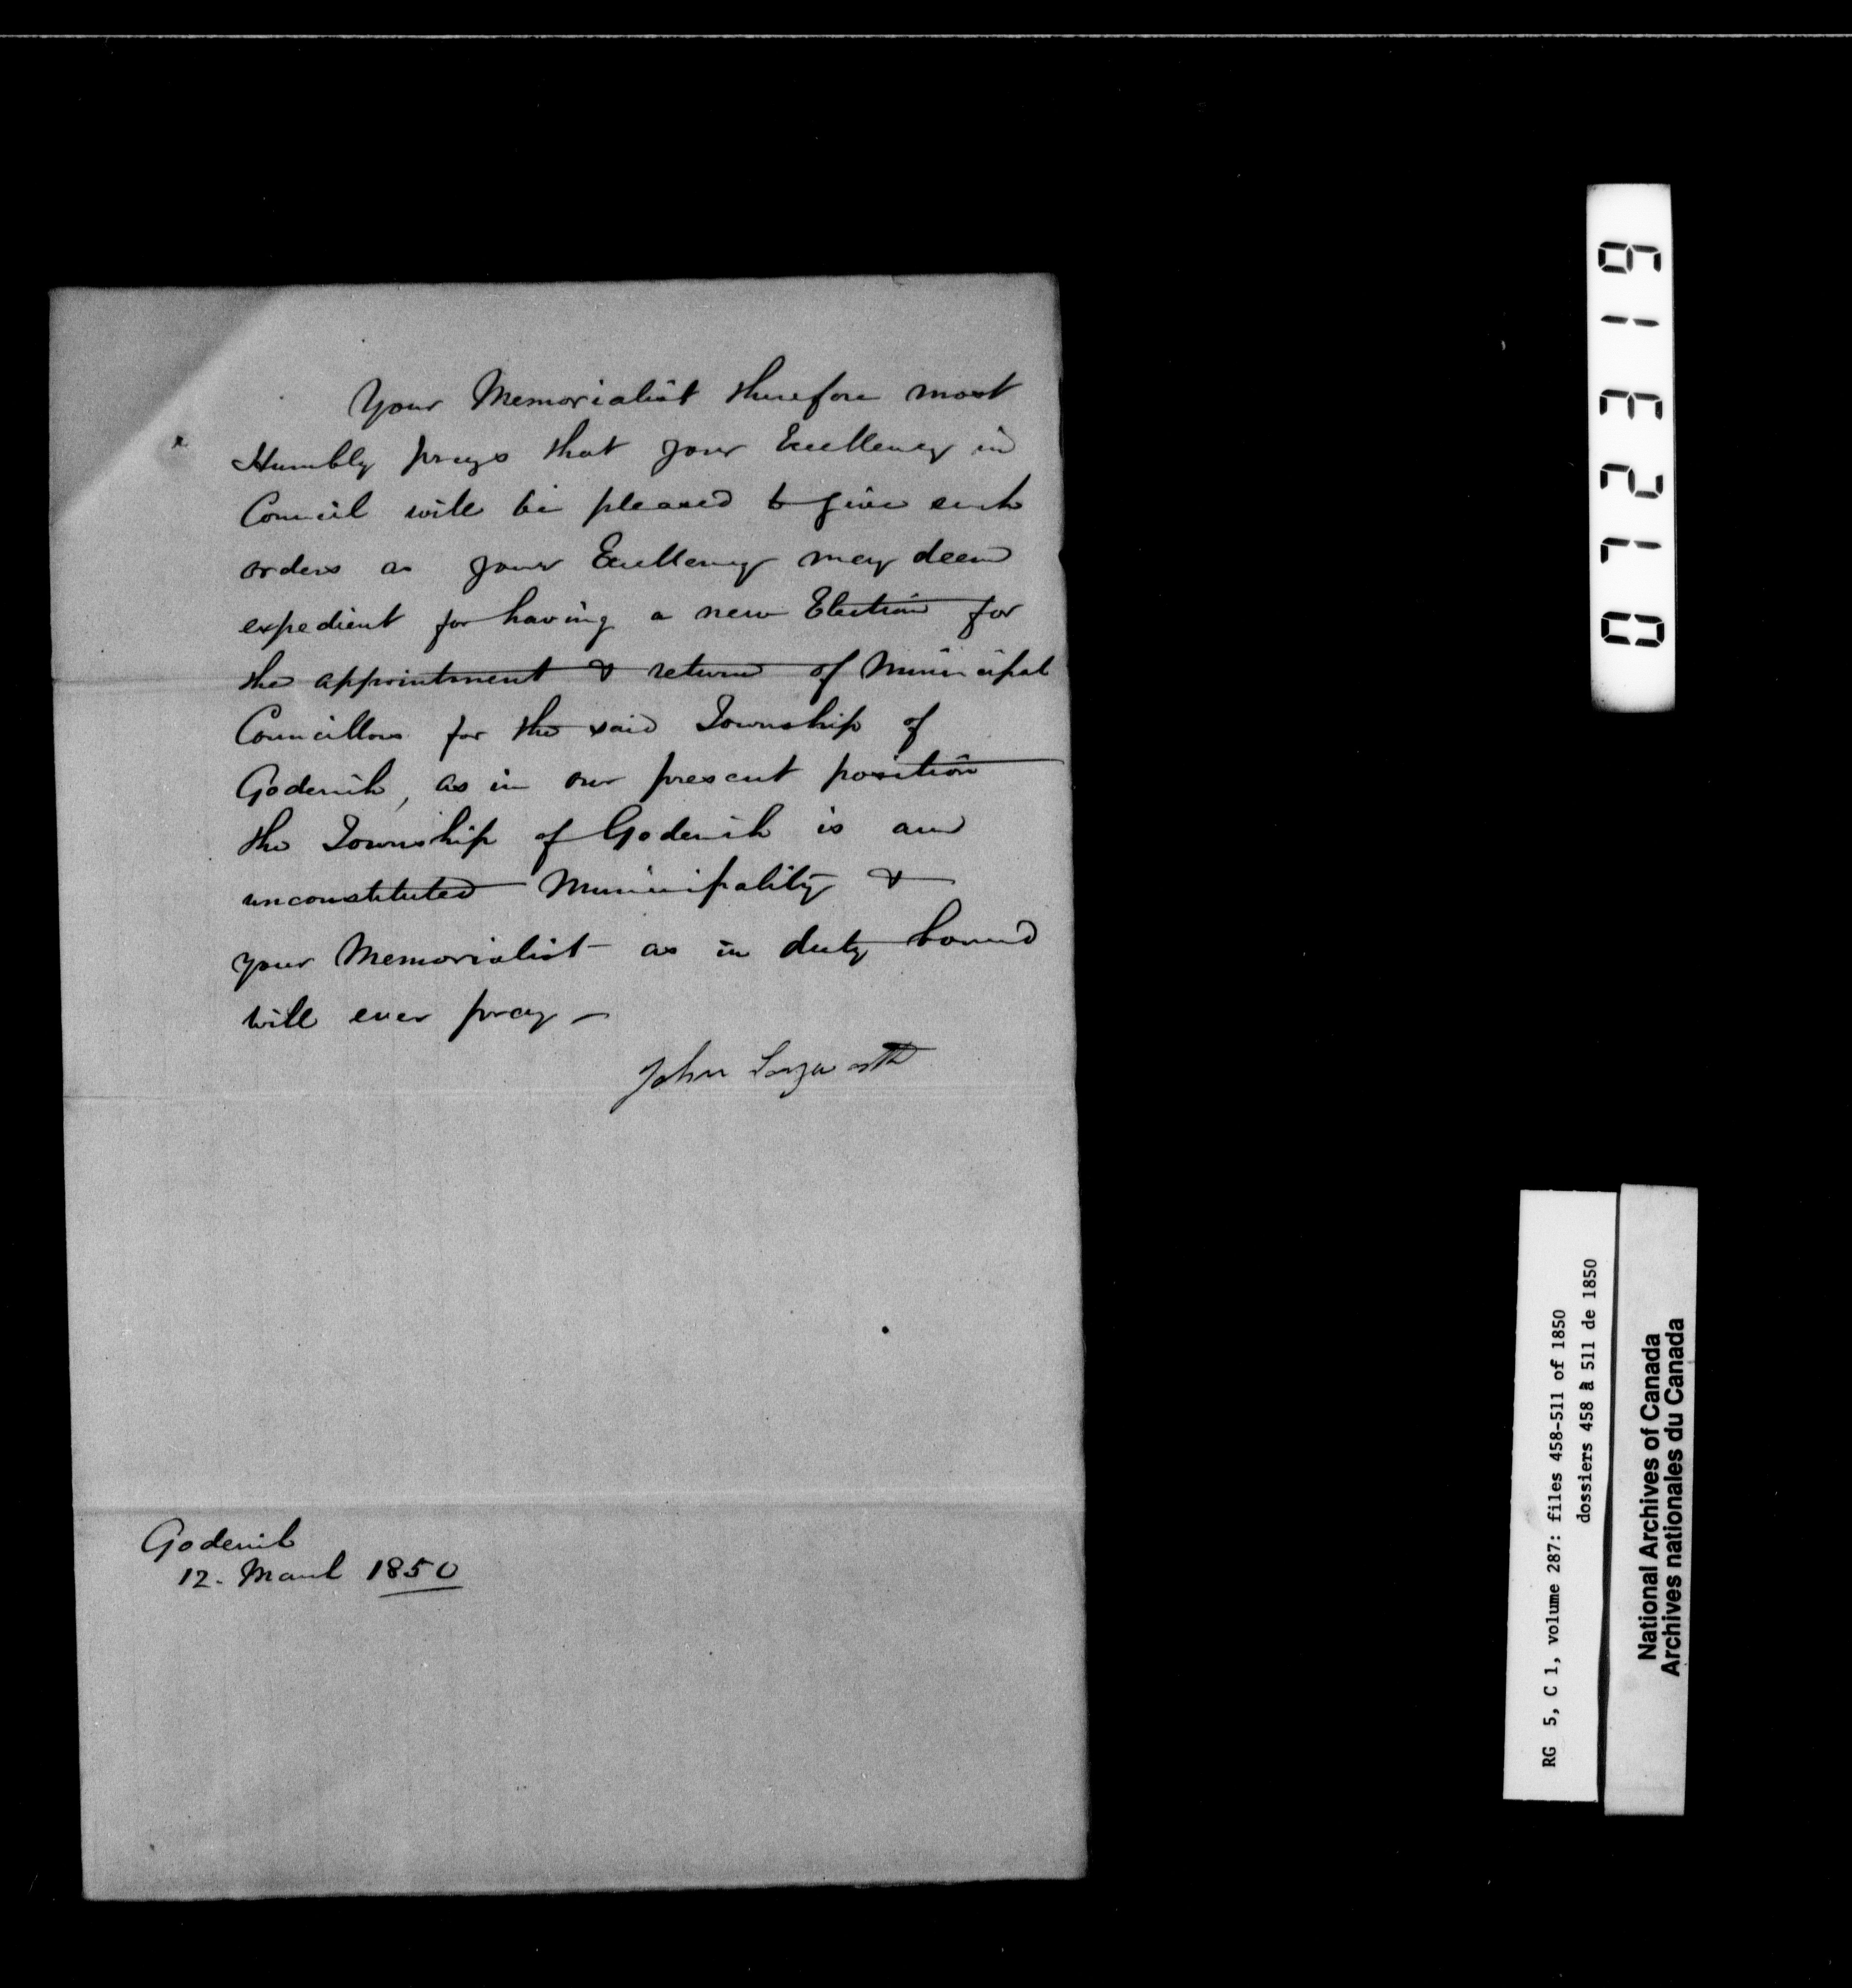 Your Memorialist therefore most
Humbly prays that your Excellency in
Council will be pleased to give such
orders as your Excellency may deem
expedient for having a new Election for
the appointment & return of Municipal
Councillors for the said Township of
Goderich, as in our present position
the Township of Goderich is an
unconstituted Municipality &
your Memorialist as in duty bound
will ever pray —
John Longworth
Goderich
12. March 1850
012319
RG 5, C 1, volume 287: files 458-511 of 1850
dossiers 458 à 511 de 1850
National Archives of Canada
Archives nationales du Canada